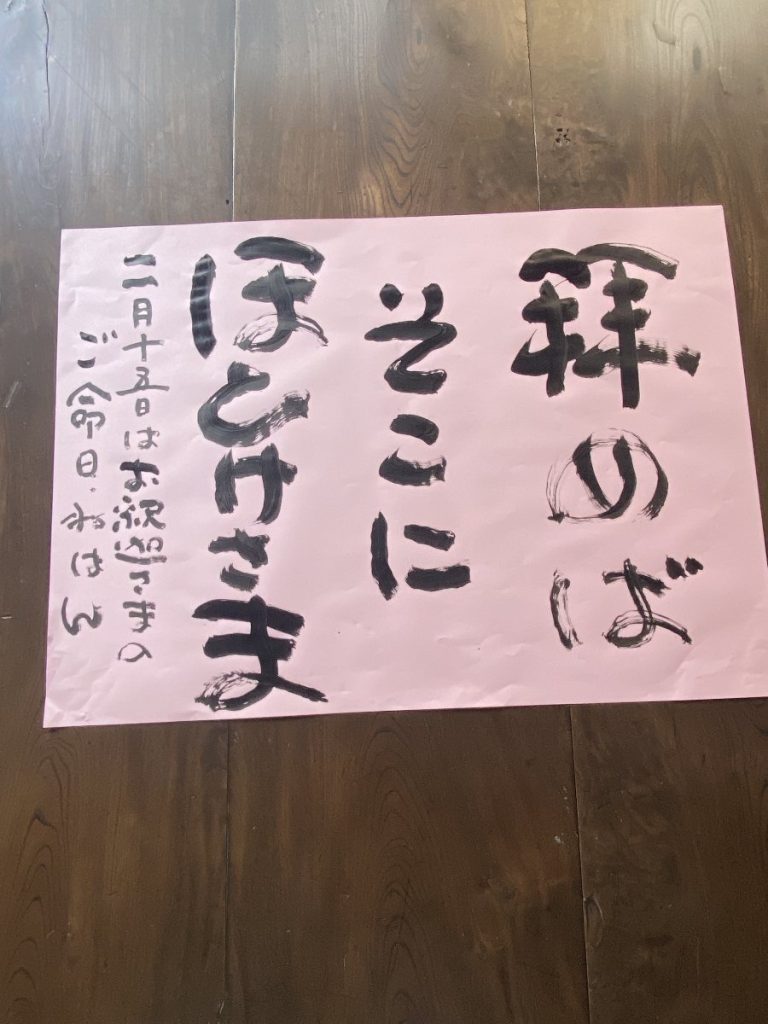 拝のば
そこに
ほとけさま
二月十五日はお釈迦さまの
ご命日・ねはん